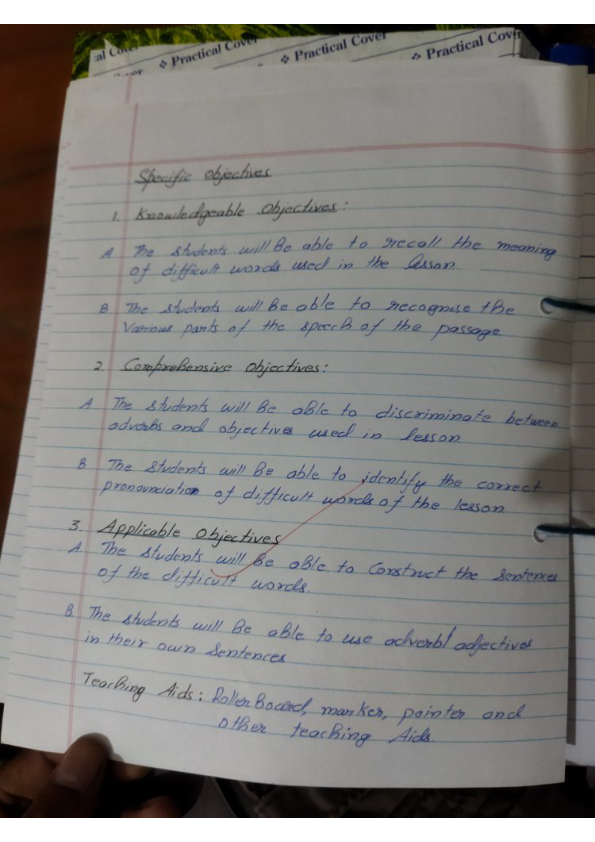 al Cover ❖ Practical Cover ❖ Practical Cover ❖ Practical Cover
Specific Objectives
1. Knowledgeable Objectives:
A The students will be able to recall the meaning
of difficult words used in the lesson
B The students will be able to recognise the
various parts of the speech of the passage
2. Comprehensive Objectives:
A The students will be able to discriminate between
adverbs and objectives used in lesson
B The students will be able to identify the correct
pronounciation of difficult words of the lesson
3. Applicable Objectives
A. The students will be able to construct the sentences
of the difficult words.
B The students will be able to use adverb/adjectives
in their own sentences
Teaching Aids: RollerBoard, marker, pointer and
other teaching Aids.